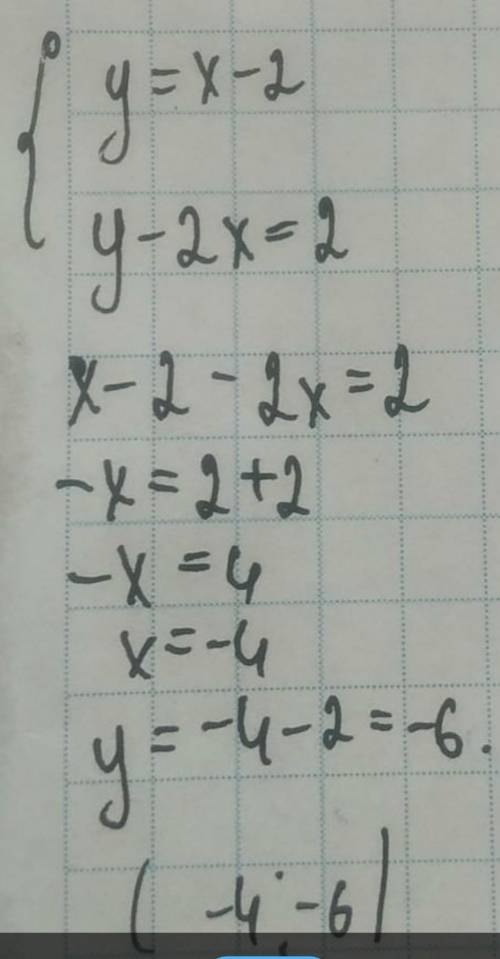 { y = x - 2
y - 2x = 2
x - 2 - 2x = 2
-x = 2 + 2
-x = 4
x = -4
y = -4 - 2 = -6.
( -4; -6)